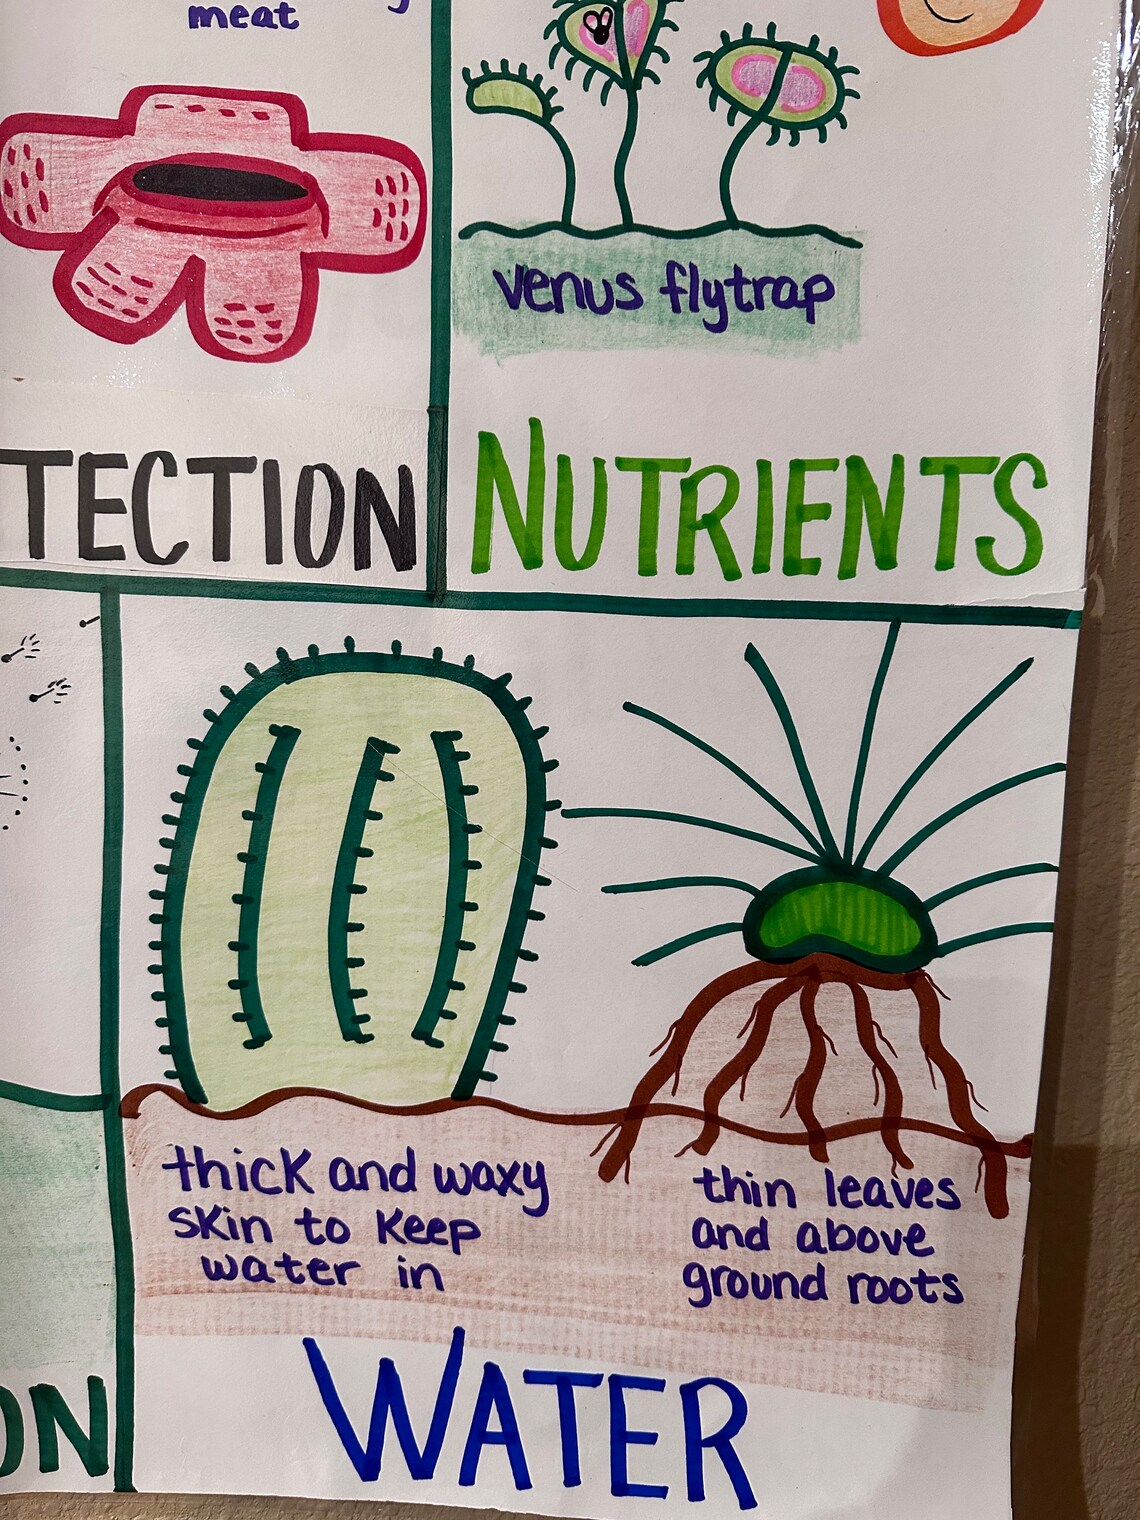 meat
venus flytrap
TECTION
NUTRIENTS
thick and waxy
skin to keep
water in
thin leaves
and above
ground roots
ON
WATER